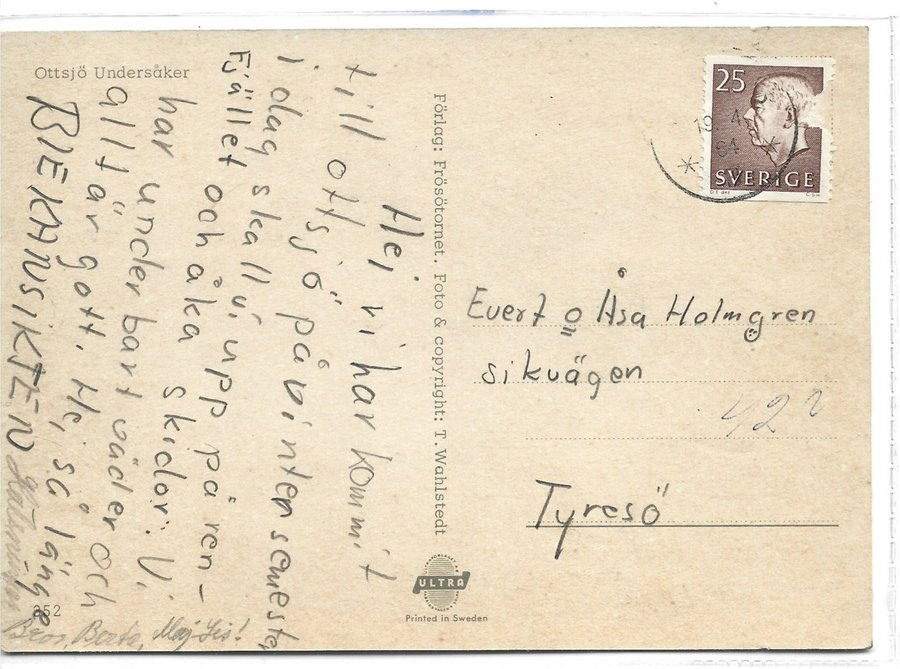 Ottsjö Undersåker
Hej vi har kommit
till ottsjö på vintersemester
i dag skall vi upp på ren-
Fjället och åka skidor: Vi
har underbart väder och
allt är gott. Hej så länge
BIEKANSIKTEN
Bror, Berta, Maj-Lis!
352
Förlag: Frösötornet. Foto & copyright: T. Wahlstedt
ULTRA
Printed in Sweden
25
SVERIGE
19 4
64
Evert o Åsa Holmgren
sikvägen
422
Tyresö